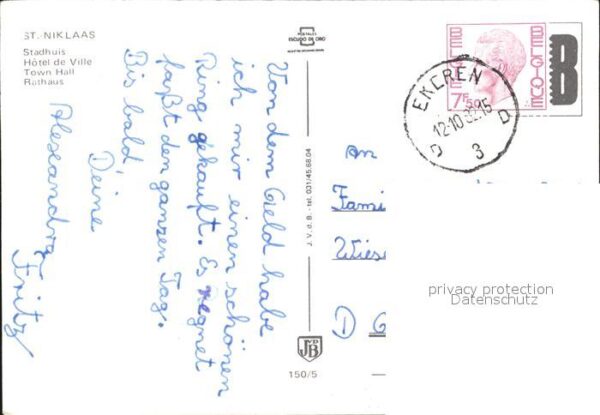 ST. NIKLAAS
Stadhuis
Hôtel de Ville
Town Hall
Rathaus
Von dem Geld habe
ich mir einen schönen
Ring gekauft. Es regnet
fast den ganzen Tag.
Bis bald!
Deine
Alexandra
Fritz
J. V. d. B. - tel. 031/45.68.04
150/5
BELGIE
BELGIQUE
7F50
B
EKEREN
12-10 82.15
D 3 D
an
Fami
Wies
D
privacy protection
Datenschutz